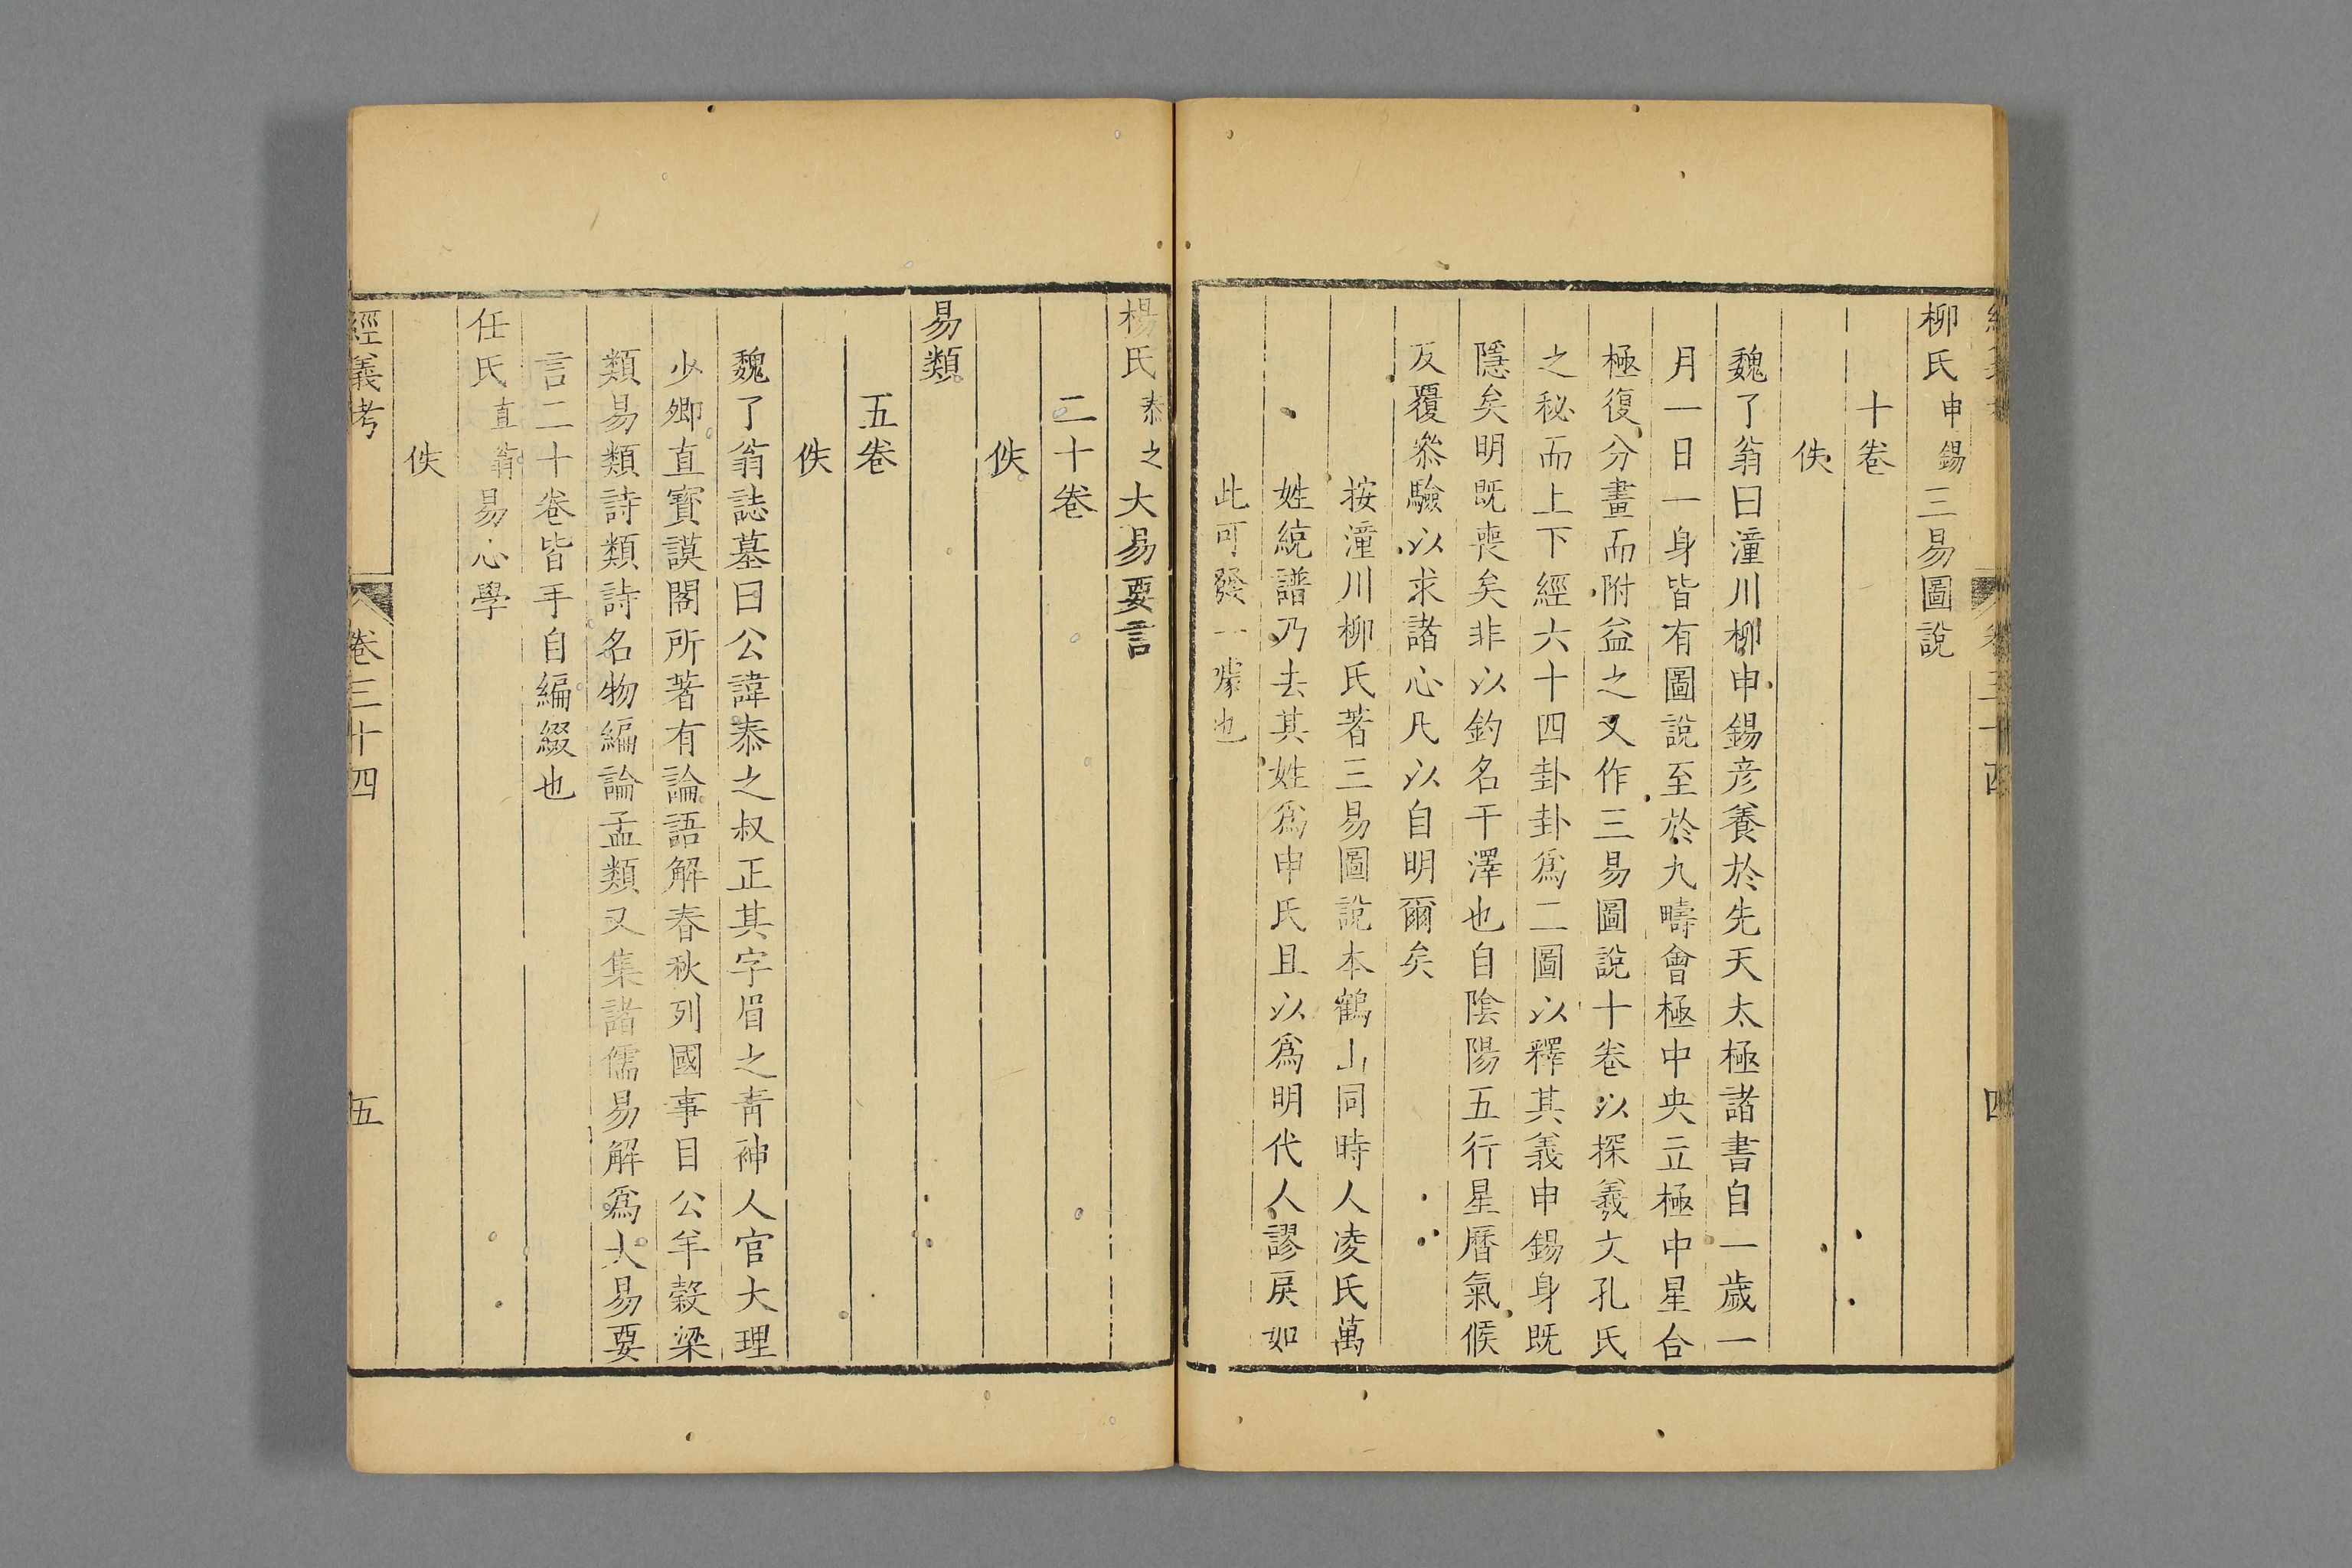 柳氏申錫三易圖說
十卷
佚
魏了翁曰潼川柳申錫彦養於先天太極諸書自一歲一
月一日一身皆有圖說至於九疇會極中央立極中星合
極復分畫而附益之又作三易圖說十卷以探羲文孔氏
之秘而上下經六十四卦卦爲二圖以釋其義申錫身既
隱矣明既喪矣非以釣名干澤也自陰陽五行星曆氣候
反覆叅驗以求諸心凡以自明爾矣
按潼川柳氏著三易圖說本鶴山同時人凌氏萬
姓統譜乃去其姓爲申氏且以爲明代人謬戾如
此可發一噱也
楊氏泰之大易要言
二十卷
佚
易類
五卷
佚
魏了翁誌墓曰公諱泰之叔正其字眉之青神人官大理
少卿直寳謨閣所著有論語解春秋列國事目公羊穀梁
類易類詩類詩名物編論孟類又集諸儒易解爲大易要
言二十卷皆手自編綴也
任氏直翁易心學
佚
經義考
卷三十四
五